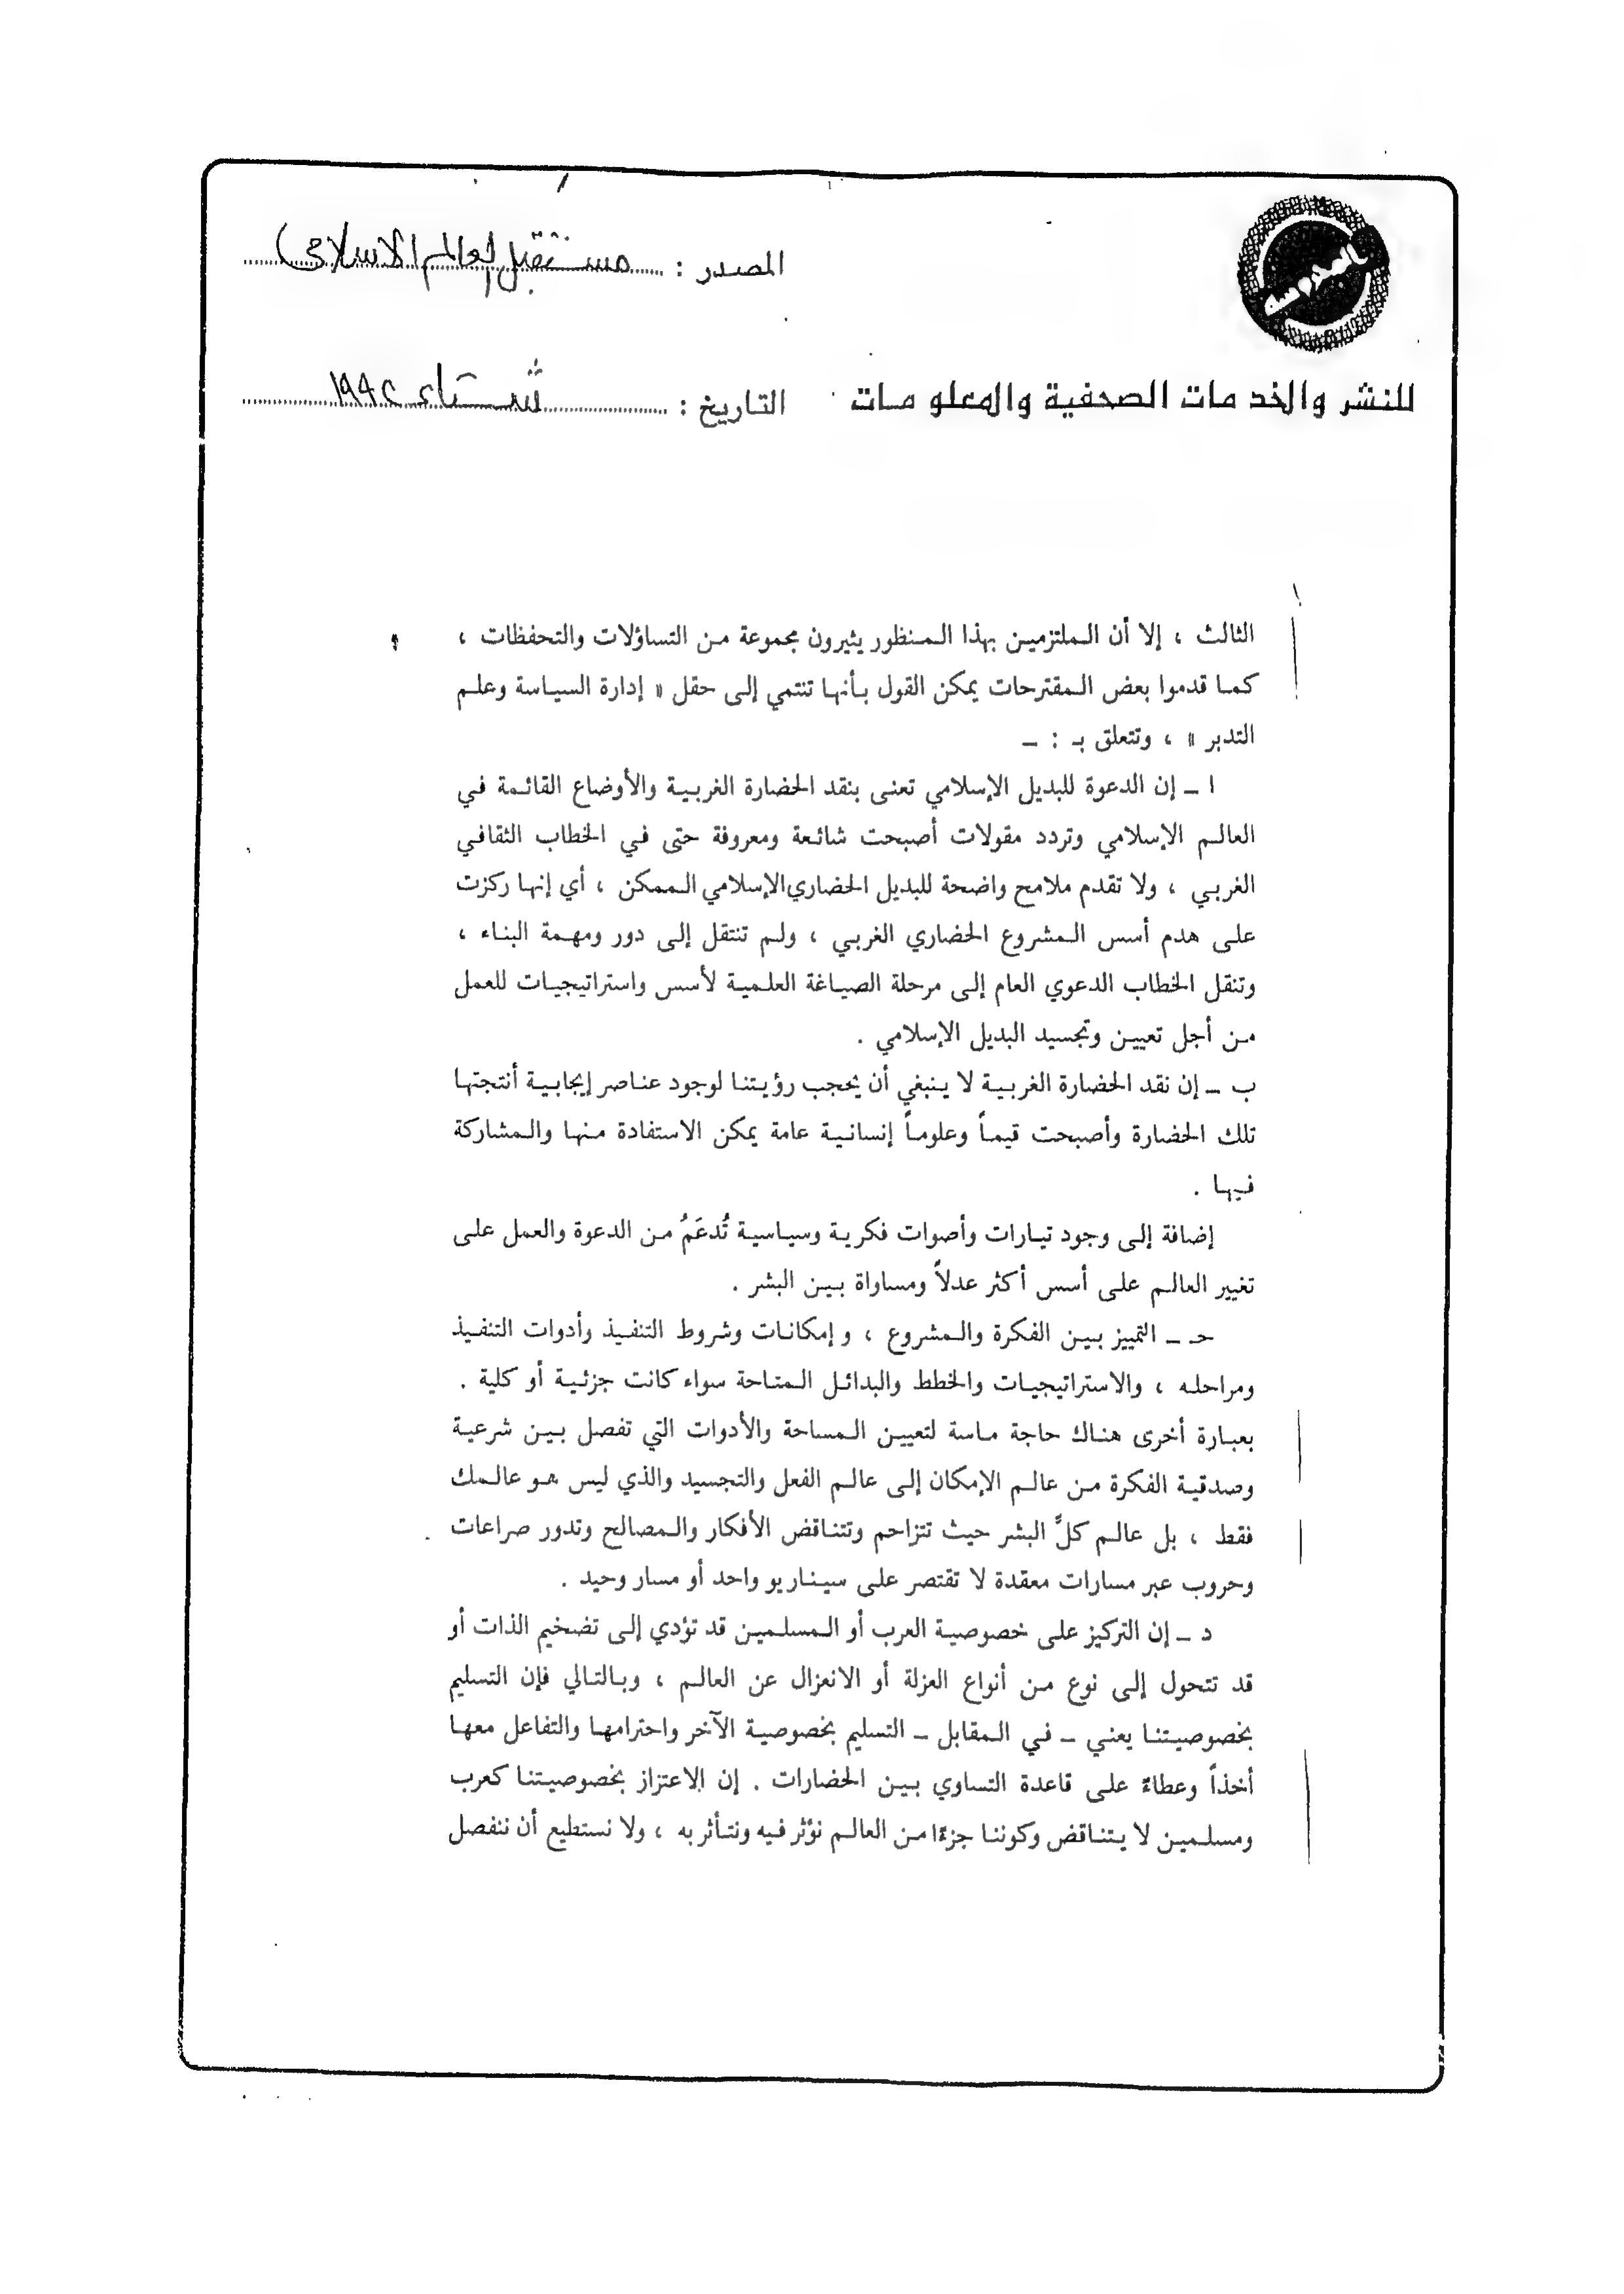 المصدر : مستقبل العالم الاسلامى
للنشر والخدمات الصحفية والمعلومات
التاريخ : شتاء ١٩٩٢
الثالث ، إلا أن الملتزمين بهذا المنظور يثيرون مجموعة من التساؤلات والتحفظات ،
كما قدموا بعض المقترحات يمكن القول بأنها تنتمي إلى حقل « إدارة السياسة وعلم
التدبر » ، وتتعلق بـ : ـ
ا ـ إن الدعوة للبديل الإسلامي تعنى بنقد الحضارة الغربية والأوضاع القائمة في
العالم الإسلامي وتردد مقولات أصبحت شائعة ومعروفة حتى في الخطاب الثقافي
الغربي ، ولا تقدم ملامح واضحة للبديل الحضاري الإسلامي الممكن ، أي إنها ركزت
على هدم أسس المشروع الحضاري الغربي ، ولم تنتقل إلى دور ومهمة البناء ،
وتنقل الخطاب الدعوي العام إلى مرحلة الصياغة العلمية لأسس واستراتيجيات للعمل
من أجل تعيين وتجسيد البديل الإسلامي .
ب ـ إن نقد الحضارة الغربية لا ينبغي أن يحجب رؤيتنا لوجود عناصر إيجابية أنتجتها
تلك الحضارة وأصبحت قيماً وعلوماً إنسانية عامة يمكن الاستفادة منها والمشاركة
فيها .
إضافة إلى وجود تيارات وأصوات فكرية وسياسية تُدعَمُ من الدعوة والعمل على
تغيير العالم على أسس أكثر عدلاً ومساواة بين البشر .
حـ ـ التمييز بين الفكرة والمشروع ، وإمكانات وشروط التنفيذ وأدوات التنفيذ
ومراحله ، والاستراتيجيات والخطط والبدائل المتاحة سواء كانت جزئية أو كلية .
بعبارة أخرى هناك حاجة ماسة لتعيين المساحة والأدوات التي تفصل بين شرعية
وصدقية الفكرة من عالم الإمكان إلى عالم الفعل والتجسيد والذي ليس هو عالمك
فقط ، بل عالم كلِّ البشر حيث تتزاحم وتتناقض الأفكار والمصالح وتدور صراعات
وحروب عبر مسارات معقدة لا تقتصر على سيناريو واحد أو مسار وحيد .
د ـ إن التركيز على خصوصية العرب أو المسلمين قد تؤدي إلى تضخيم الذات أو
قد تتحول إلى نوع من أنواع العزلة أو الانعزال عن العالم ، وبالتالي فإن التسليم
بخصوصيتنا يعني ـ في المقابل ـ التسليم بخصوصية الآخر واحترامها والتفاعل معها
أخذاً وعطاءً على قاعدة التساوي بين الحضارات . إن الاعتزاز بخصوصيتنا كعرب
ومسلمين لا يتناقض وكوننا جزءًا من العالم نؤثر فيه ونتأثر به ، ولا نستطيع أن ننفصل